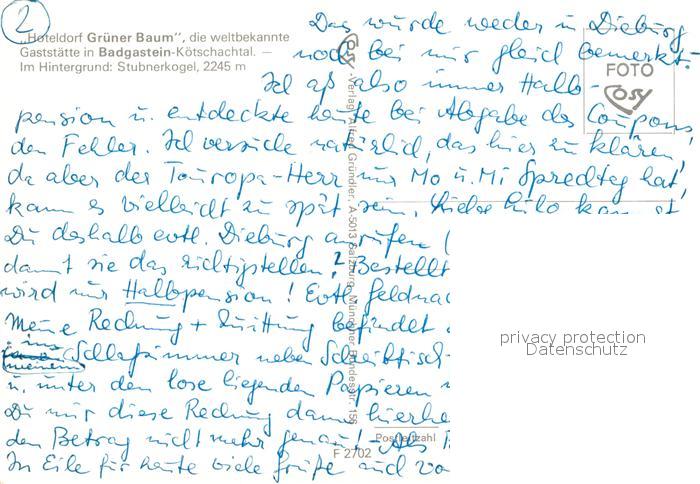 2
„Hoteldorf Grüner Baum“, die weltbekannte
Gaststätte in Badgastein-Kötschachtal. —
Im Hintergrund: Stubnerkogel, 2245 m
Das wurde weder in Dieburg
noch bei mir gleich bemerkt.
Ich aß also immer Halb-
pension u. entdeckte heute bei Abgabe des Coupons,
den Fehler. Ich versuche natürlich, das hier zu klären,
da aber der Touropa-Herr nur Mo u. Mi Sprechtag hat,
kann es vielleicht zu spät sein.
Du deshalb evtl. Dieburg anrufen (
damit sie das richtigstellen? Bestellt
wird nur Halbpension! Evtl.
Meine Rechnung + Quittung befindet
im
meinem Schlafzimmer neben Schreibtisch
u. unter den lose liegenden Papieren
Du mir diese Rechnung dann hierhe
den Betrag nicht mehr genau! Als
In Eile für heute viele Grüße auch vo
FOTO
Cosy
Cosy-Verlag Alfred Gründler, A-5013 Salzburg, Münchner Bundesstr. 156
Postleitzahl
F 2702
privacy protection
Datenschutz